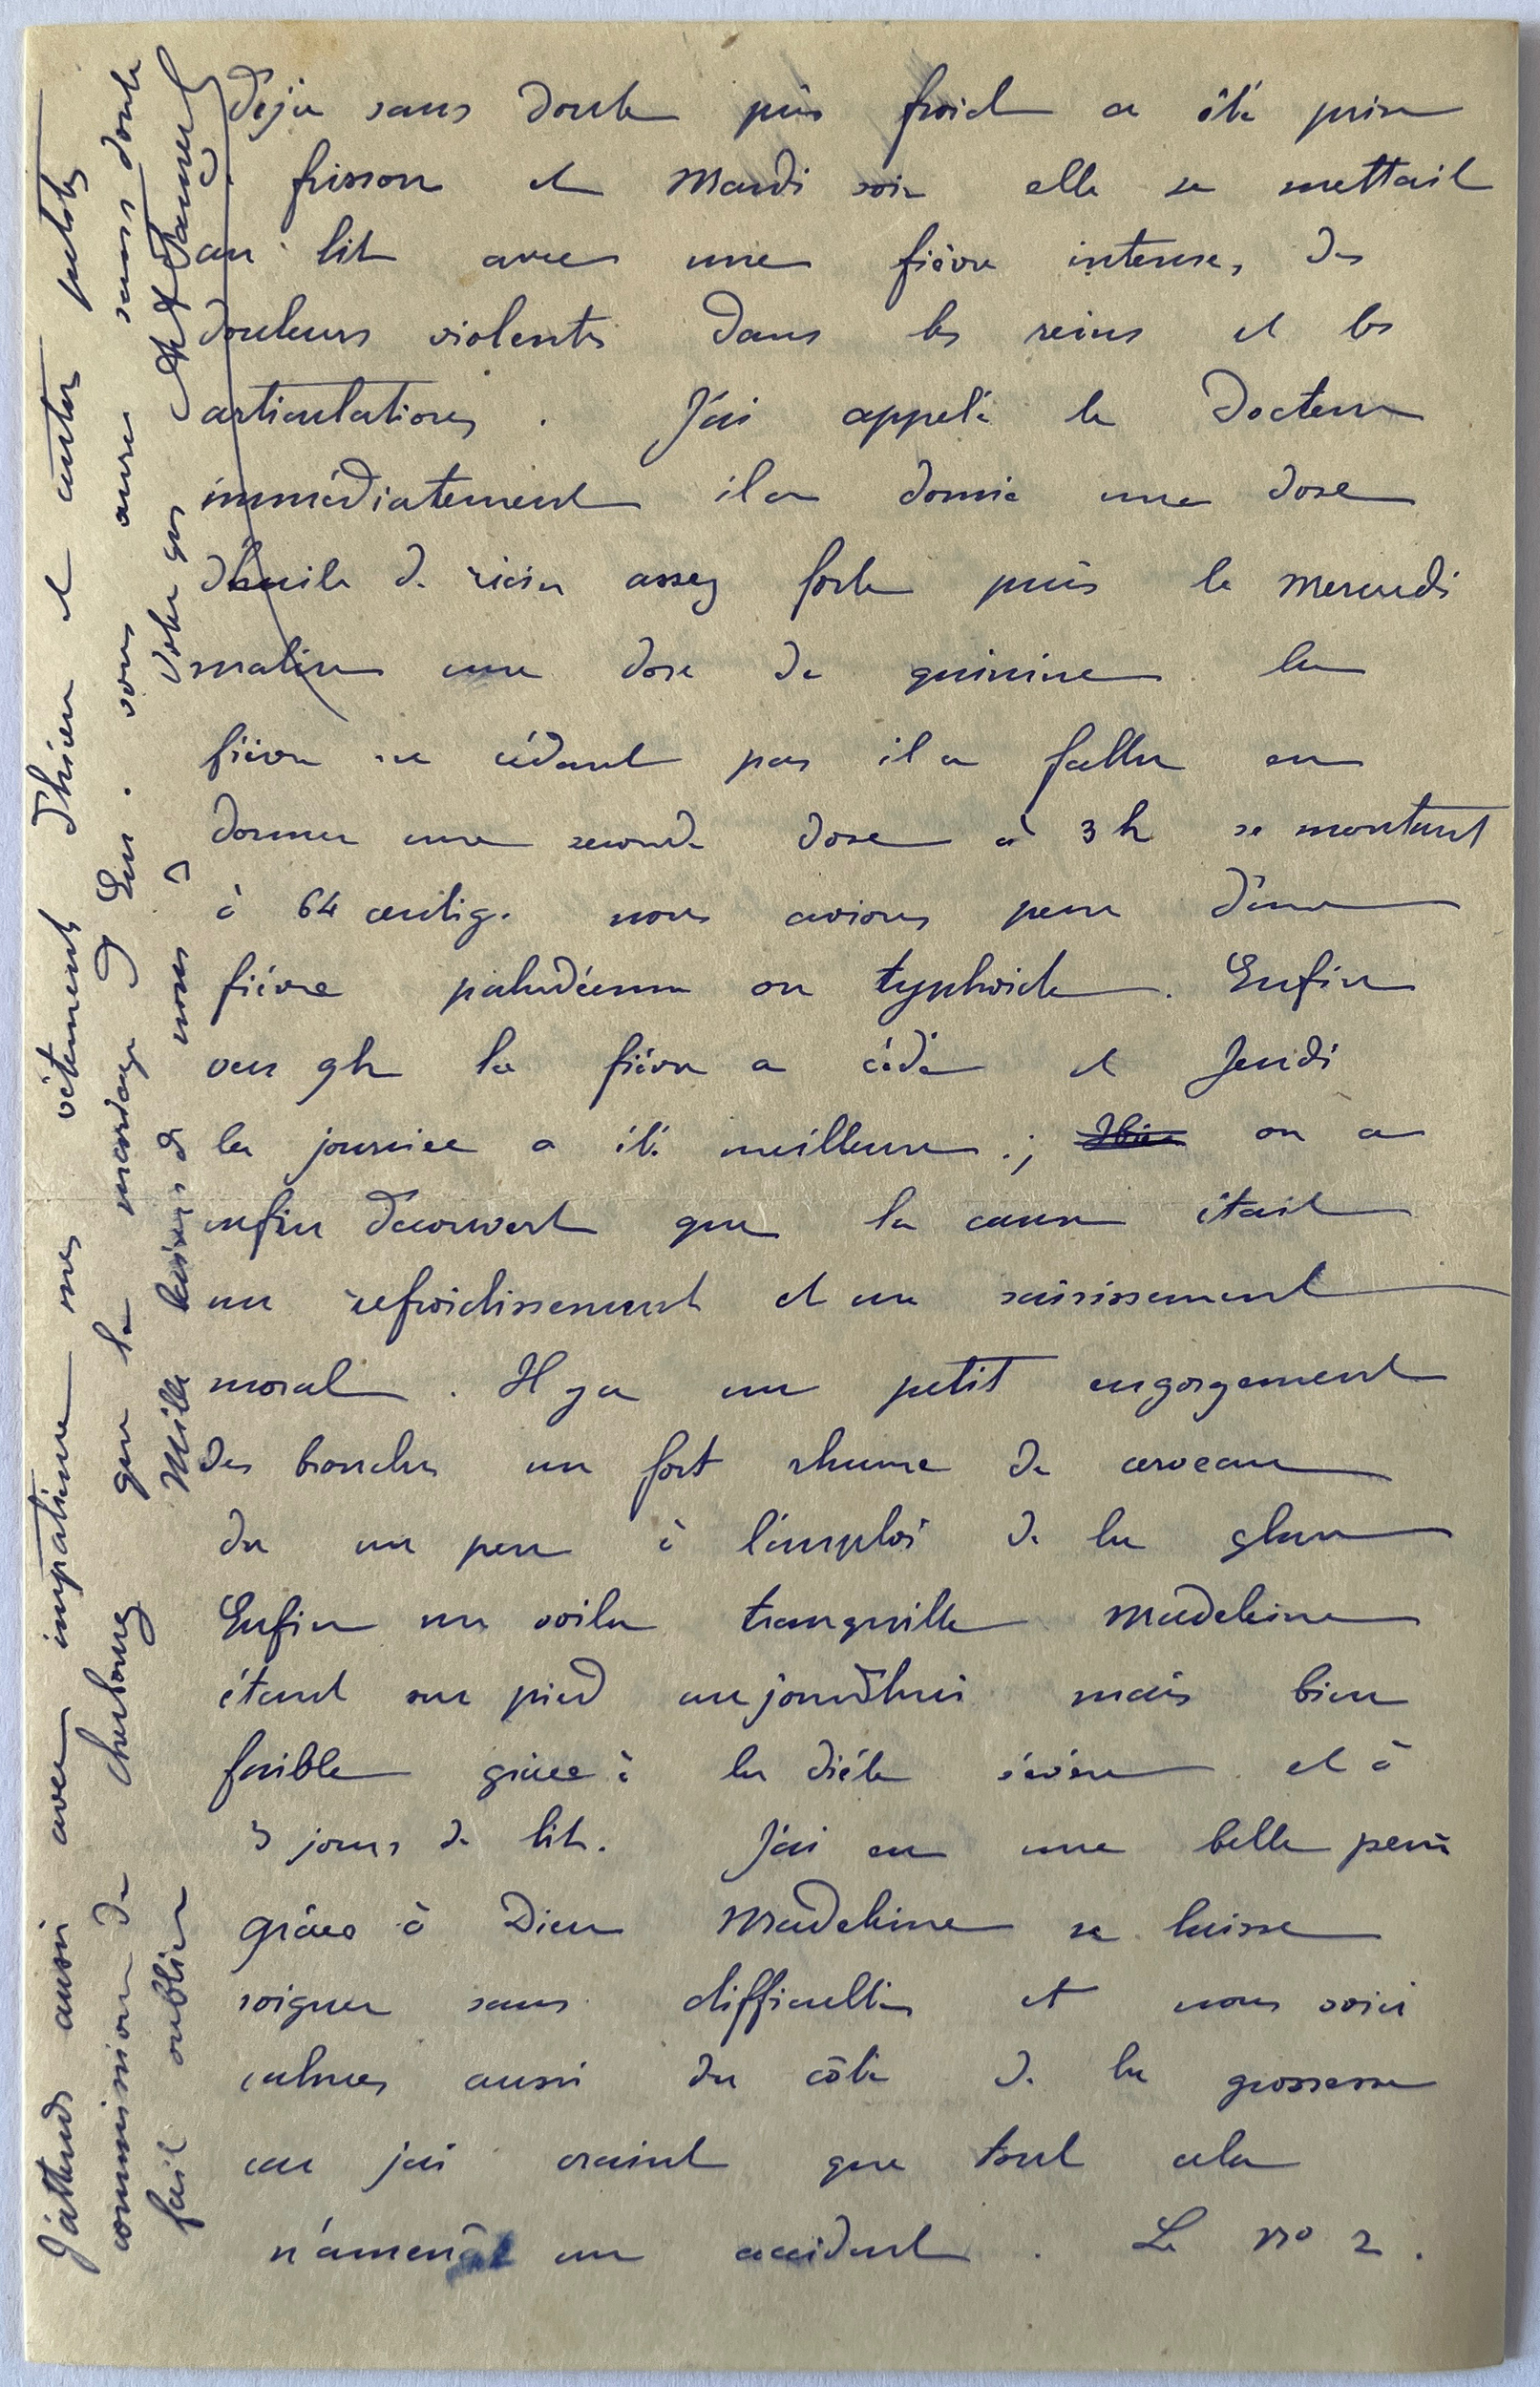 déja sans doute pris froid a été prise
frisson et Mardi soir elle se mettait
au lit avec une fièvre intense, des
douleurs violentes dans les reins et les
articulations. J'ai appelé le Docteur
immédiatement il a donné une dose
d'huile de ricin assez forte puis le Mercredi
matin une dose de quinine la
fièvre ne cédant pas il a fallu en
donner une seconde dose à 3h se montant
à 64 centig. nous avions peur d'une
fièvre paludéenne ou typhoide. Enfin
vers 9h la fièvre a cédé et Jeudi
la journée a été meilleure.; on a
enfin découvert que la cause était
un refroidissement et un saisissement
moral. Il y a un petit engorgement
des bronches un fort rhume de cerveau
du un peu à l'emploi de la glace
Enfin me voila tranquille Madeleine
étant sur pied aujourd'hui mais bien
faible grâce à la diéte sévère et à
3 jours de lit. J'ai eu une belle peur
grâce à Dieu Madeleine se laisse
soigner sans difficultés et nous voici
calmes aussi du côté de la grossesse
car j'ai craint que tout cela
n'amenât un accident. Le No 2.
J'attends aussi avec impatience mes vêtements d'hiver et autres
commission de Cherbourg que le mariage Lui. vous aura sans doute
fait oublier Mille baisers de nous 2 Votre